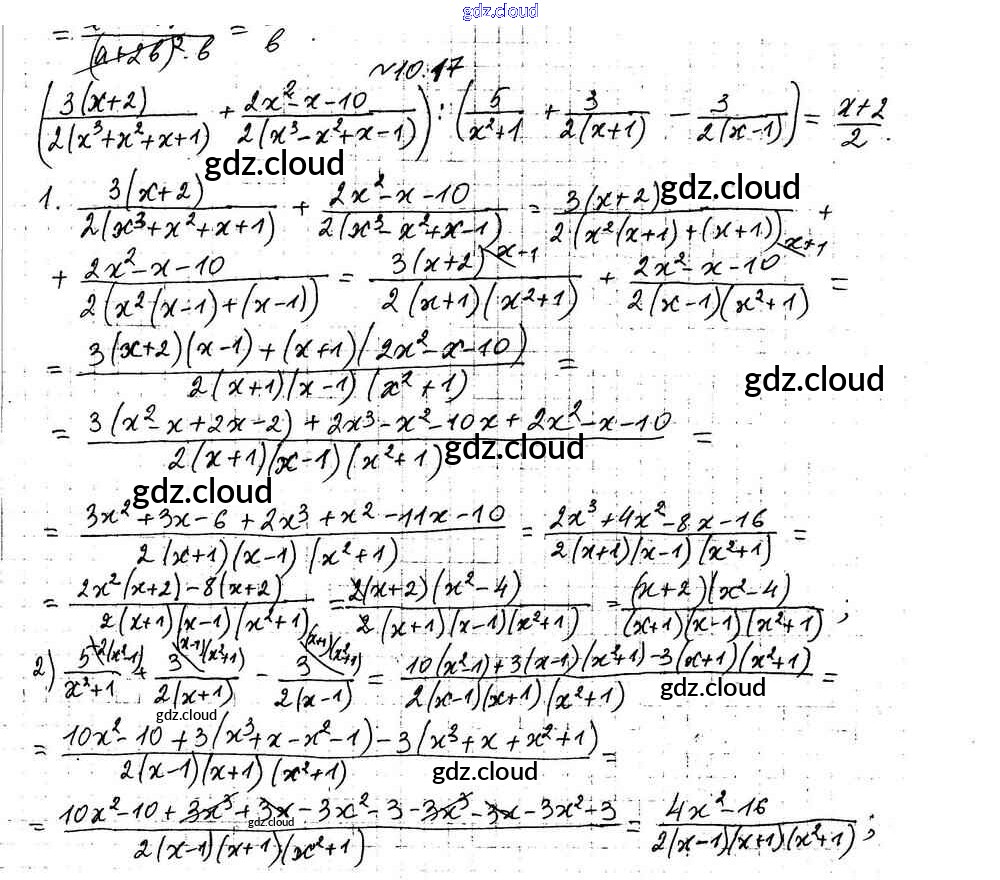 gdz.cloud
= / (a+2b)²·b = b .
№10.17
(3(x+2) / 2(x³+x²+x+1) + 2x²-x-10 / 2(x³-x²+x-1)) : (5 / x²+1 + 3 / 2(x+1) - 3 / 2(x-1)) = x+2 / 2 .
gdz.cloud
gdz.cloud
1. 3(x+2) / 2(x³+x²+x+1) + 2x²-x-10 / 2(x³-x²+x-1) = 3(x+2) / 2(x²(x+1)+(x+1)) +
+ 2x²-x-10 / 2(x²(x-1)+(x-1)) = 3(x+2) \x-1 / 2(x+1)(x²+1) + 2x²-x-10 \x+1 / 2(x-1)(x²+1) =
= 3(x+2)(x-1)+(x+1)(2x²-x-10) / 2(x+1)(x-1)(x²+1) =
gdz.cloud
= 3(x²-x+2x-2)+2x³-x²-10x+2x²-x-10 / 2(x+1)(x-1)(x²+1) =
gdz.cloud
gdz.cloud
= 3x²+3x-6+2x³+x²-11x-10 / 2(x+1)(x-1)(x²+1) = 2x³+4x²-8x-16 / 2(x+1)(x-1)(x²+1) =
= 2x²(x+2)-8(x+2) / 2(x+1)(x-1)(x²+1) = 2(x+2)(x²-4) / 2(x+1)(x-1)(x²+1) = (x+2)(x²-4) / (x+1)(x-1)(x²+1) ;
2) 5 \2(x²-1) / x²+1 + 3 \(x-1)(x²+1) / 2(x+1) - 3 \(x+1)(x²+1) / 2(x-1) = 10(x²-1)+3(x-1)(x²+1)-3(x+1)(x²+1) / 2(x-1)(x+1)(x²+1) =
gdz.cloud
gdz.cloud
= 10x²-10+3(x³+x-x²-1)-3(x³+x+x²+1) / 2(x-1)(x+1)(x²+1) =
gdz.cloud
= 10x²-10+3x³+3x-3x²-3-3x³-3x-3x²+3 / 2(x-1)(x+1)(x²+1) = 4x²-16 / 2(x-1)(x+1)(x²+1) ;
gdz.cloud